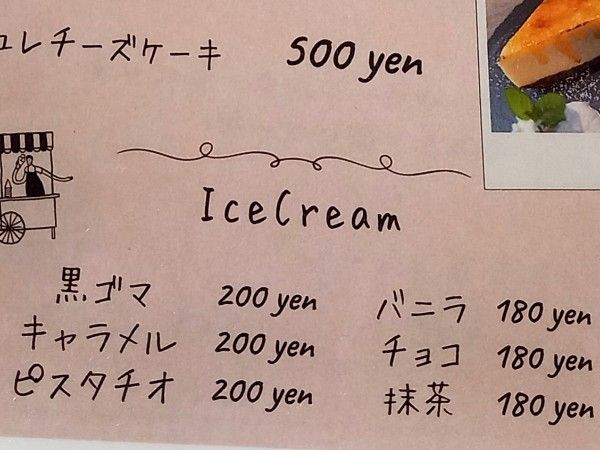 ュレチーズケーキ 500 yen
IceCream
黒ゴマ 200 yen バニラ 180 yen
キャラメル 200 yen チョコ 180 yen
ピスタチオ 200 yen 抹茶 180 yen